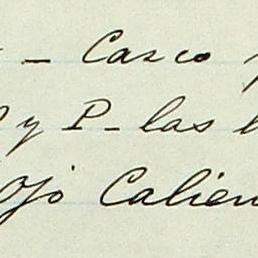 - Casco
y P- las
Ojo Calien